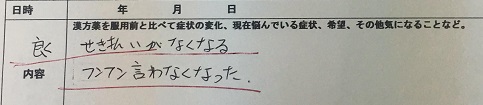 日時 年 月 日
漢方薬を服用前と比べて症状の変化、現在悩んでいる症状、希望、その他気になることなど。
良く せき払いがなくなる
内容 フンフン言わなくなった.